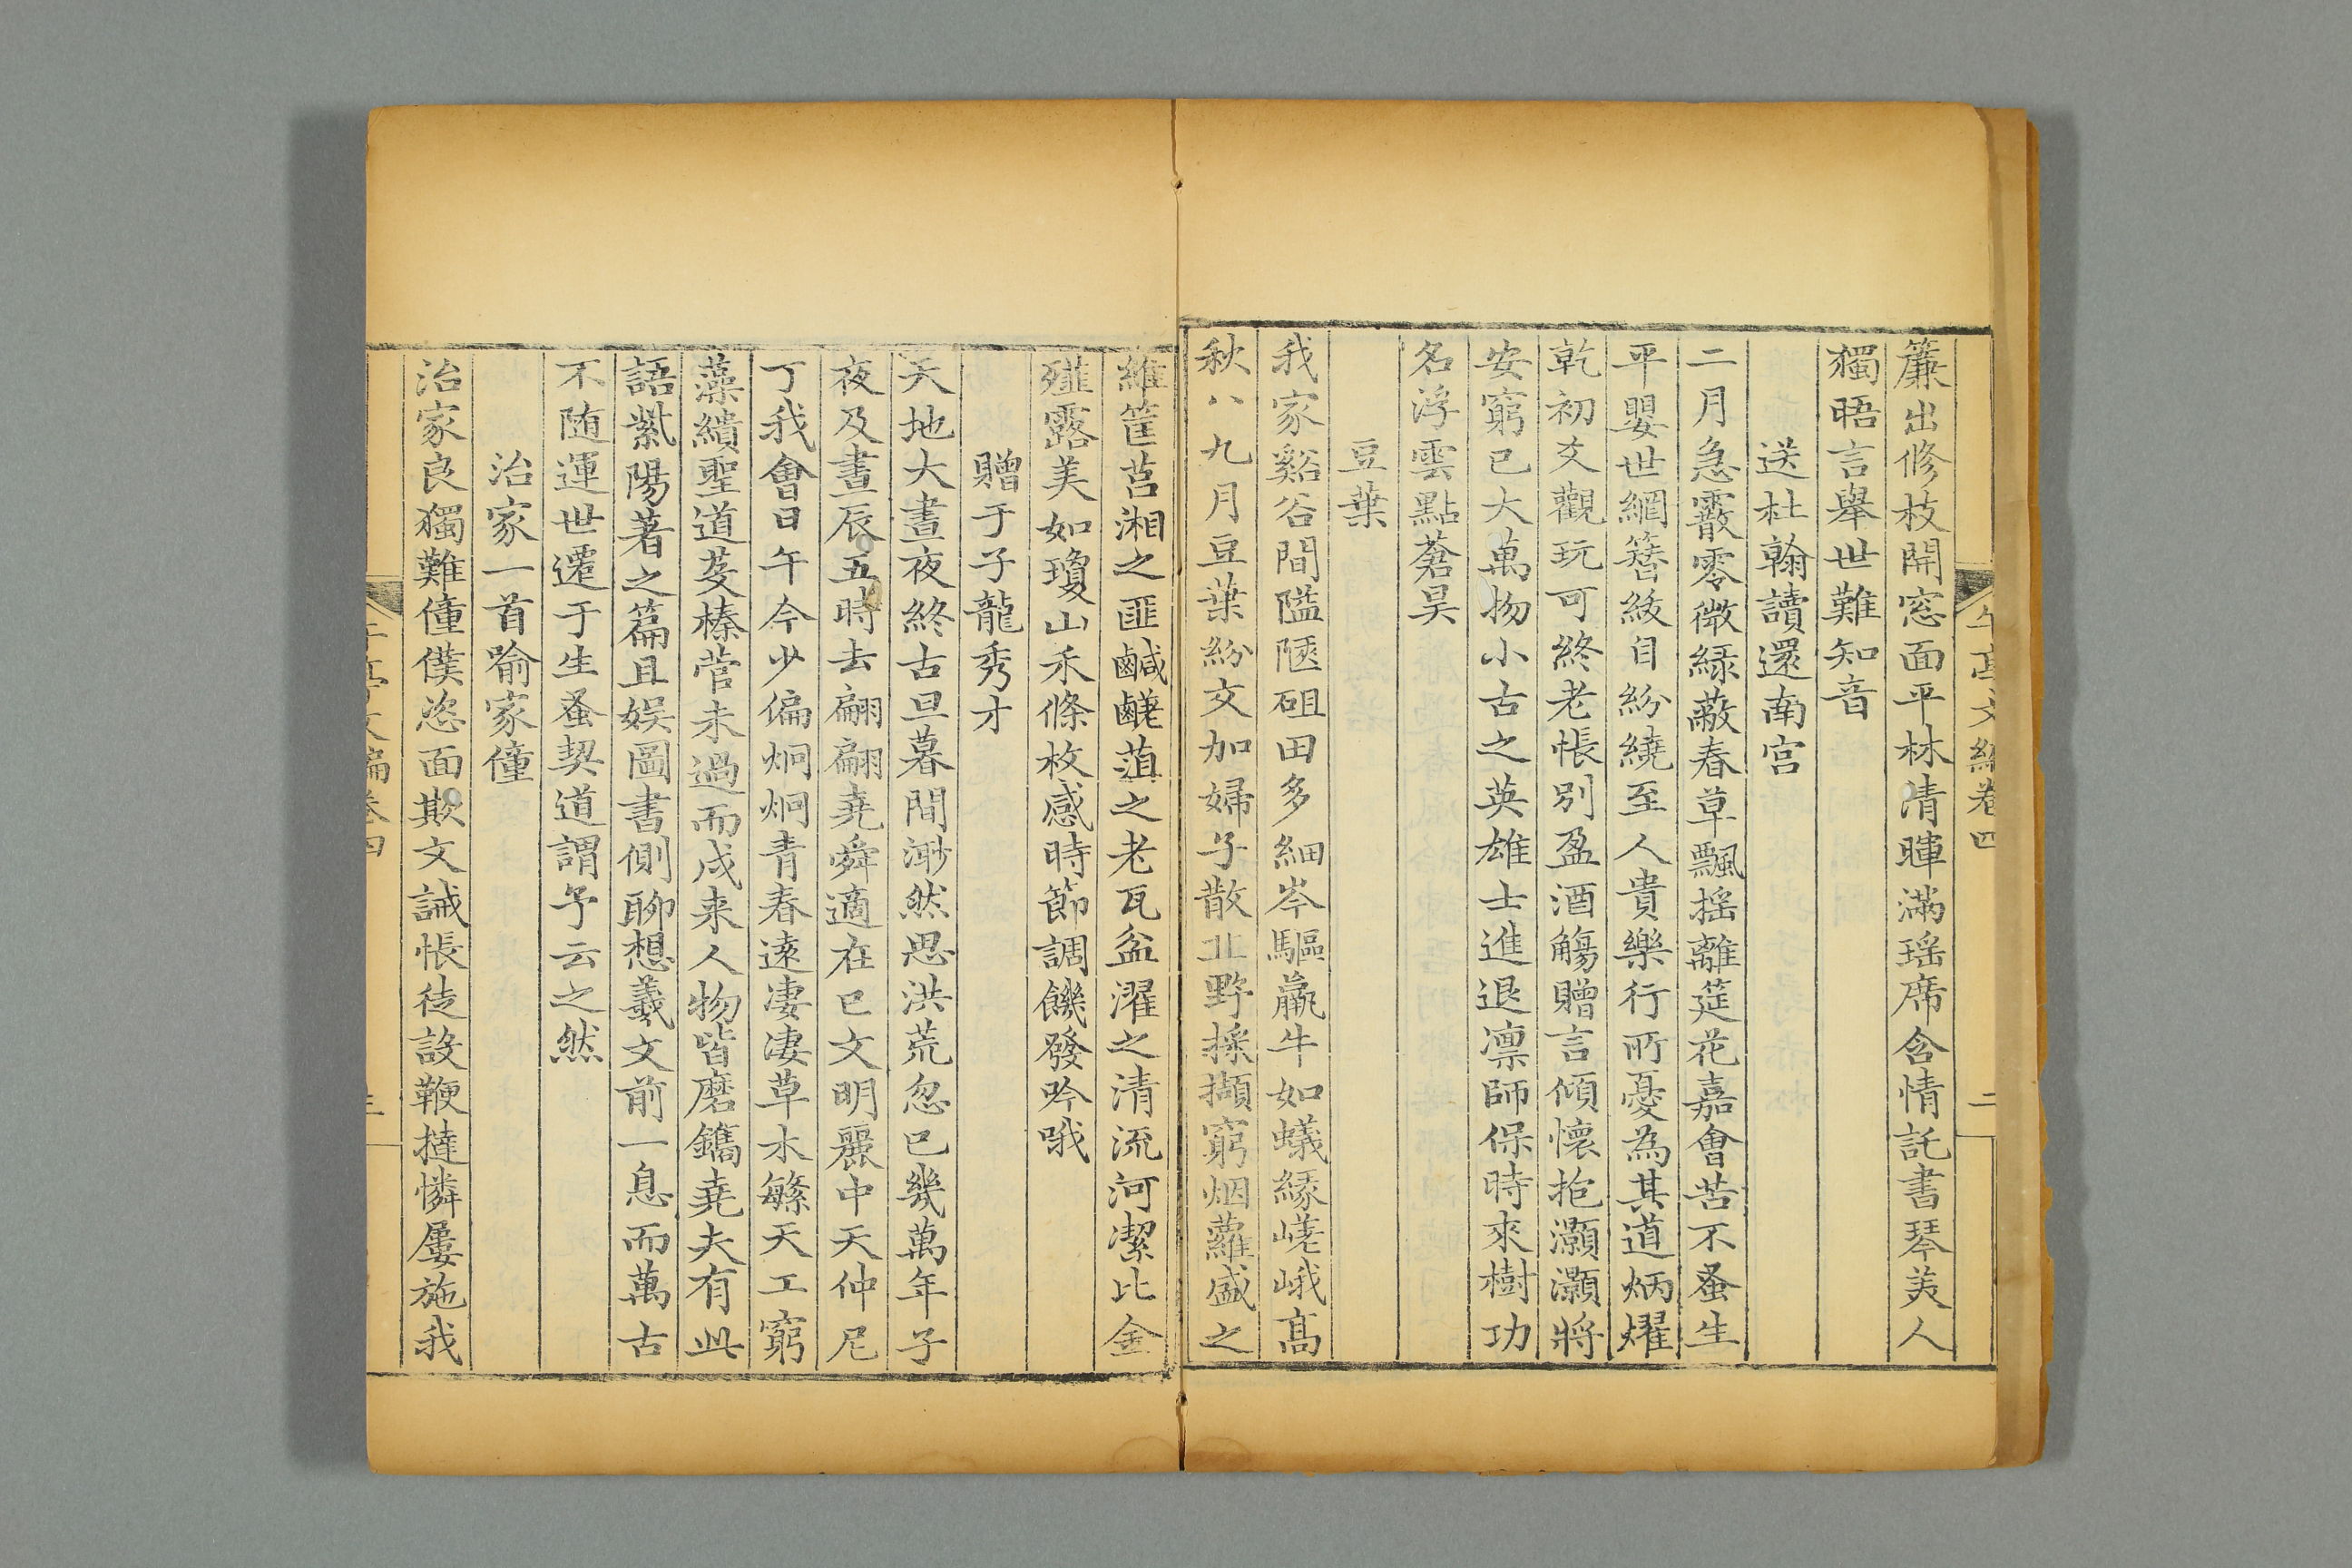 午亭文編卷四
二
簾出修枝開窓面平林清暉滿瑶席含情託書琴美人
獨晤言舉世難知音
送杜翰讀還南宫
二月急霰零微緑蔽春草飄摇離筵花嘉會苦不蚤生
平嬰世網簪紱自紛繞至人貴樂行所憂為其道炳燿
乾初爻觀玩可終老悵別盈酒觴贈言傾懷抱灝灝將
安窮已大萬物小古之英雄士進退凛師保時來樹功
名浮雲點蒼昊
豆葉
我家谿谷間隘陿砠田多細岑驅羸牛如蟻緣嵯峨髙
秋八九月豆葉紛交加婦子散丘野採擷窮烟蘿盛之
維筐莒湘之匪鹹鹺菹之老瓦盆濯之清流河潔比金
薤露美如瓊山禾條枚感時節調饑發吟哦
贈于子龍秀才
天地大晝夜終古旦暮間渺然思洪荒忽已幾萬年子
夜及晝辰五時去翩翩堯舜適在巳文明麗中天仲尼
丁我會日午今少偏炯炯青春逺凄凄草木緐天工窮
藻繢聖道芟榛菅未過而戍来人物皆磨鐫堯夫有此
語紫陽著之篇且娱圖書側聊想羲文前一息而萬古
不随運世遷于生蚤契道謂予云之然
治家一首喻家僮
治家良獨難僮僕恣面欺文誡悵徒設鞭撻憐屢施我
午亭文編卷四
三